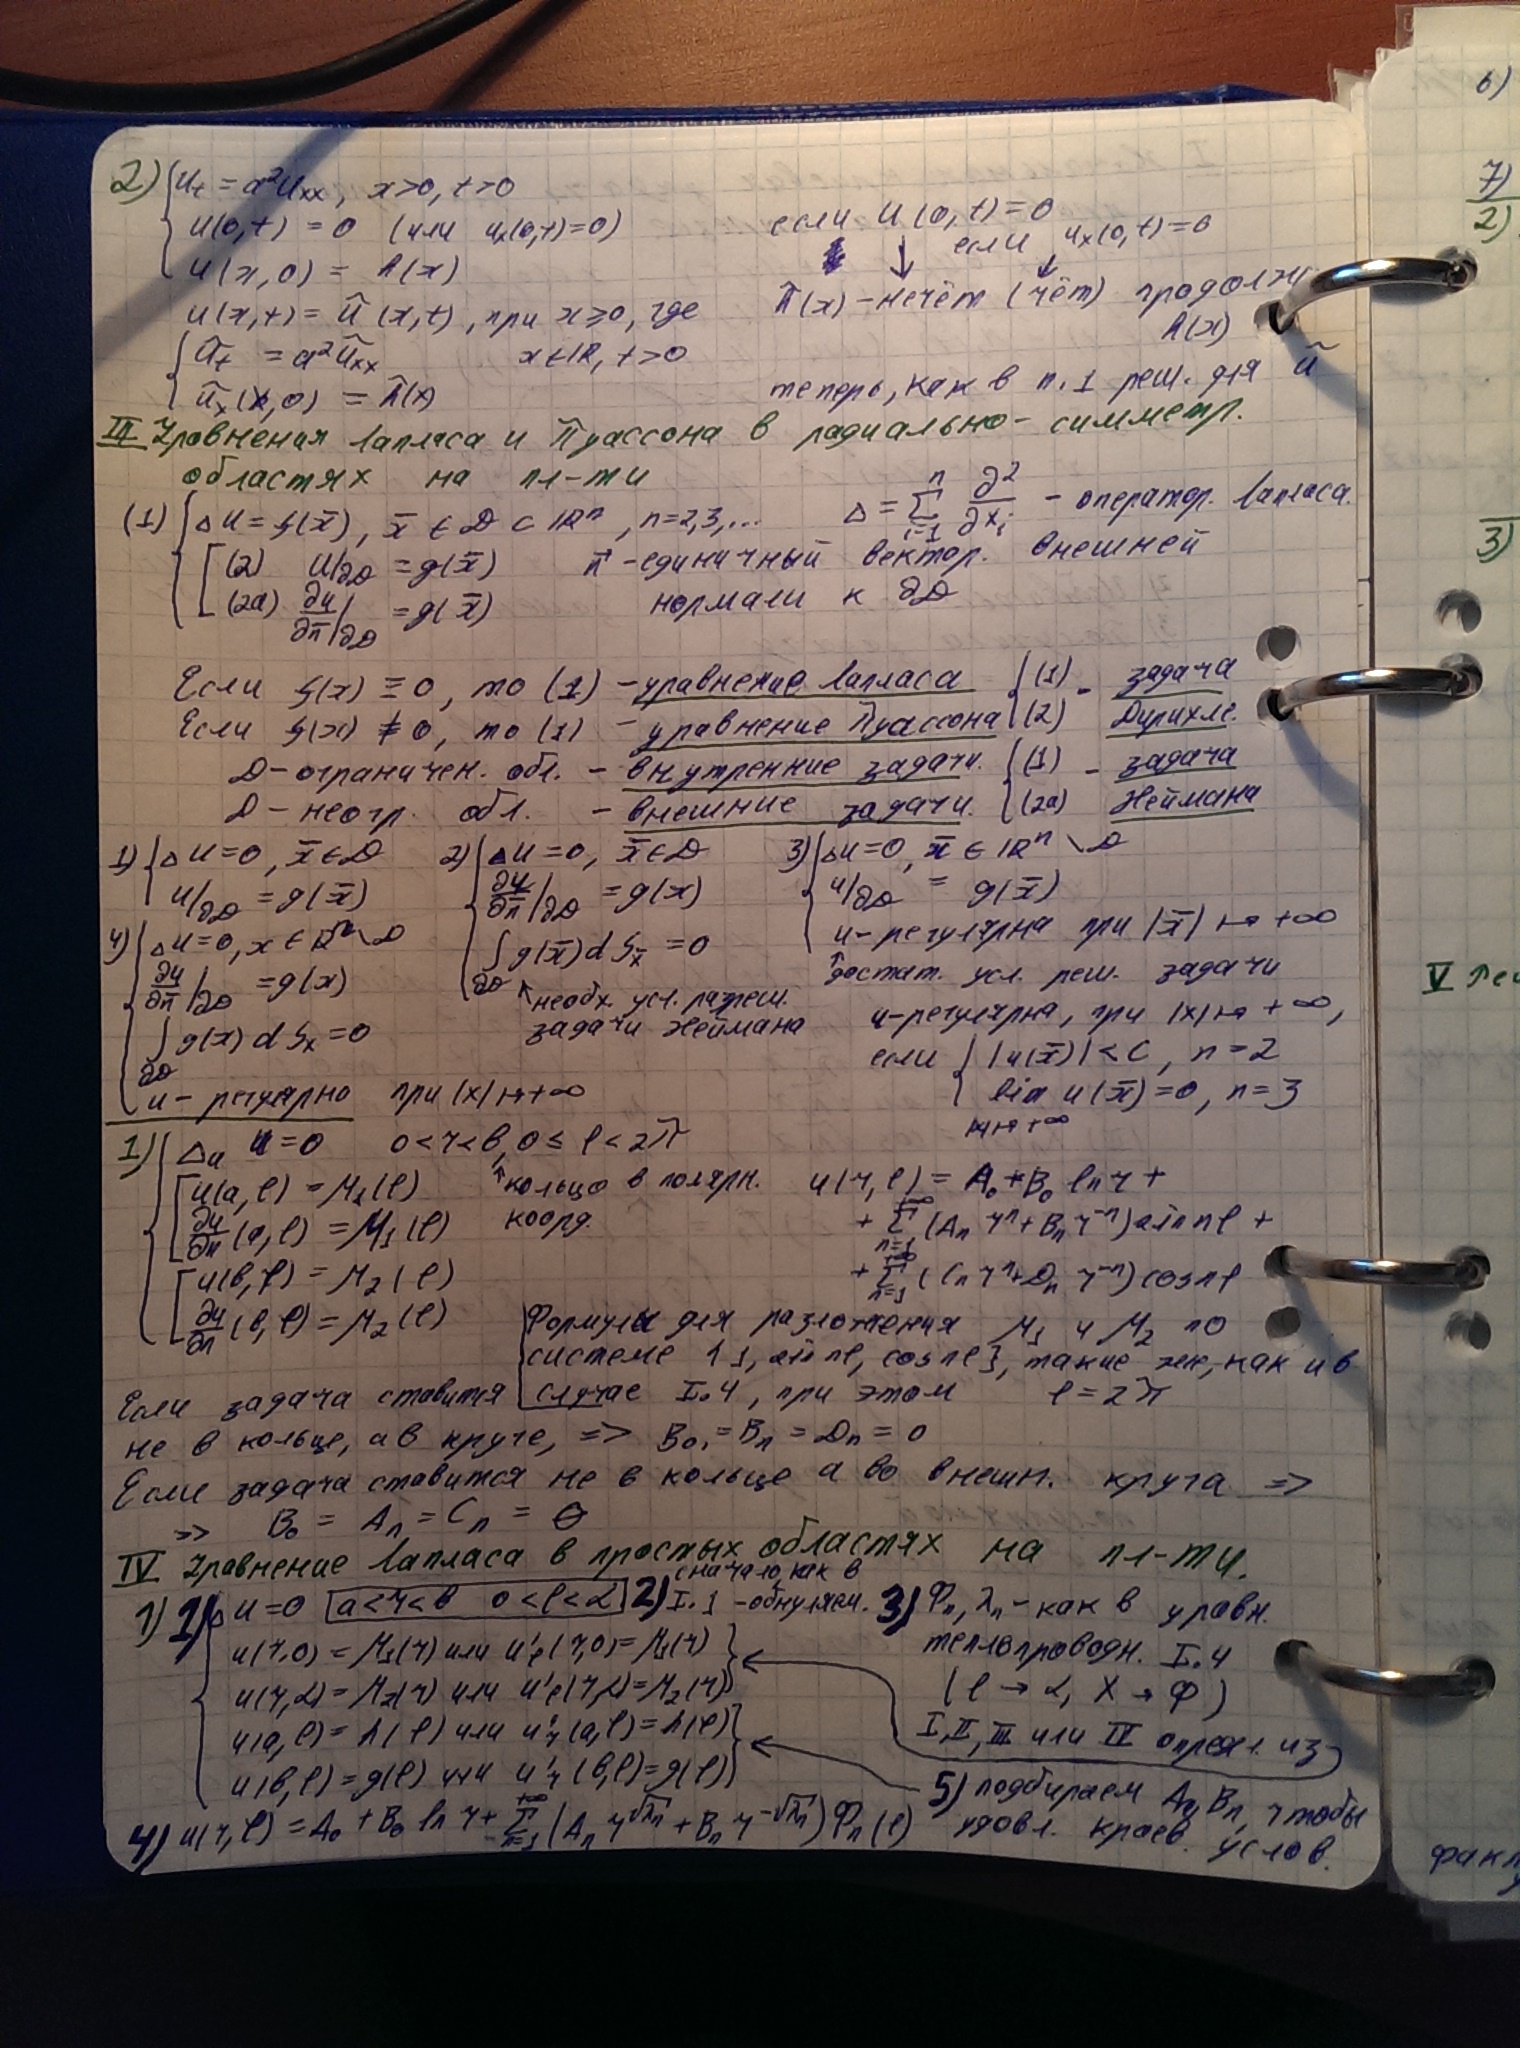 2) { u_t = a²u_xx, x>0, t>0
u(0,t) = 0 (или u_x(0,t)=0)
u(x,0) = h(x)
если u(0,t)=0
если u_x(0,t)=0
↓ ↓
ĥ(x) - нечёт (чёт) продолж
h(x)
u(x,t) = ũ(x,t), при x⩾0, где
{ ũ_t = a²ũ_xx x∈ℝ, t>0
ũ_x(x,0) = h̃(x)
теперь, как в п.1 реш. для ũ
III Уравнения Лапласа и Пуассона в радиально-симметр.
областях на пл-ти
(1) { Δu = f(x̄), x̄ ∈ D ⊂ ℝⁿ, n=2,3,... Δ = Σ_{i=1}^{n} ∂²/∂x_i - оператор. Лапласа.
[ (2) u|_∂D = g(x̄) n⃗ - единичный вектор. внешней
(2a) ∂u/∂n̄|_∂D = g(x̄) нормали к ∂D
Если f(x) ≡ 0, то (1) - уравнение Лапласа { (1) - задача
Если f(x) ≢ 0, то (1) - уравнение Пуассона { (2) Дирихле.
D - ограничен. обл. - внутренние задачи. { (1) - задача
D - неогр. обл. - внешние задачи. { (2a) Неймана
1) { Δu=0, x̄∈D
u|_∂D = g(x̄)
2) { Δu=0, x̄∈D
∂u/∂n̄|_∂D = g(x)
∫_∂D g(x̄)dS_x̄ = 0
↑ необх. усл. разреш.
задачи Неймана
3) { Δu=0, x̄ ∈ ℝⁿ\D
u|_∂D = g(x̄)
u - регулярна при |x̄| ↦ +∞
↑ достат. усл. реш. задачи
u - регулярна, при |x| ↦ +∞,
если { |u(x̄)| < C, n=2
lim u(x̄)=0, n=3
|x| ↦ +∞
4) { Δu=0, x∈ℝⁿ\D
∂u/∂n̄|_∂D = g(x)
∫_∂D g(x)dS_x = 0
u - регулярно при |x| ↦ +∞
1) { Δu u=0 0<r<b, 0≤φ<2π
[ u(a,φ) = M₁(φ) ↑ кольцо в полярн.
∂u/∂n(a,φ) = M₁(φ) коорд.
[ u(b,φ) = M₂(φ)
∂u/∂n(b,φ) = M₂(φ)
u(r,φ) = A₀+B₀ ln r +
+ Σ_{n=1}^{+∞} (A_n rⁿ + B_n r⁻ⁿ) sin nφ +
+ Σ_{n=1}^{+∞} (C_n rⁿ + D_n r⁻ⁿ) cos nφ
Формулы для разложения M₁ и M₂ по
системе {1, sin nφ, cos nφ}, такие же, как и в
случае I.4, при этом l = 2π
Если задача ставится
не в кольце, а в круге, => B₀ = B_n = D_n = 0
Если задача ставится не в кольце а во внешн. круга =>
=> B₀ = A_n = C_n = 0
IV Уравнение Лапласа в простых областях на пл-ти.
1) 1) { Δu=0 a<r<b 0<φ<α
u(r,0) = M₁(r) или u'_φ(r,0)=M₁(r)
u(r,α)=M₂(r) или u'_φ(r,α)=M₂(r)
u(a,φ)=h(φ) или u'_r(a,φ)=h(φ)
u(b,φ)=g(φ) или u'_r(b,φ)=g(φ)
2) сначало, как в
I.1 - обнуляем.
3) Φ_n, λ_n - как в уравн.
теплопроводн. I.4
(l → α, X → Φ)
I, II, III или IV определ. из
4) u(r,φ) = A₀ + B₀ ln r + Σ_{n=1}^{+∞} (A_n r^{√λ_n} + B_n r^{-√λ_n}) Φ_n(φ)
5) подбираем A_n, B_n, чтобы
удовл. краев. услов.
6)
7)
2)
3)
V Ре
факт